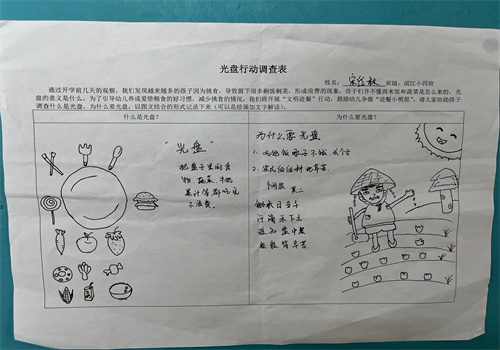 光盘行动调查表
姓名： 班级：滨江小四班
通过开学前几天的观察，我们发现越来越多的孩子因为挑食，导致剩下很多剩饭剩菜，形成浪费的现象。孩子们并不懂得米饭和蔬菜是怎么来的，光
盘的意义是什么，为了引导幼儿养成爱惜粮食的好习惯，减少挑食的情况。我们将开展“文明进餐”行动，鼓励幼儿争做“进餐小明星”，请大家协助孩子
调查什么是光盘，为什么要光盘，以图文结合的形式记录下来（可以是绘画加文字解读）。
什么是光盘？
“光盘”
把盘子里的食
物、蔬菜、牛奶
果汁等都吃完
不浪费。
为什么要光盘？
为什么要光盘
1、吃饱饭肚子不饿、长个子
2、农民伯伯种地辛苦
悯农 其二
锄禾日当午
汗滴禾下土
谁知盘中餐
粒粒皆辛苦。